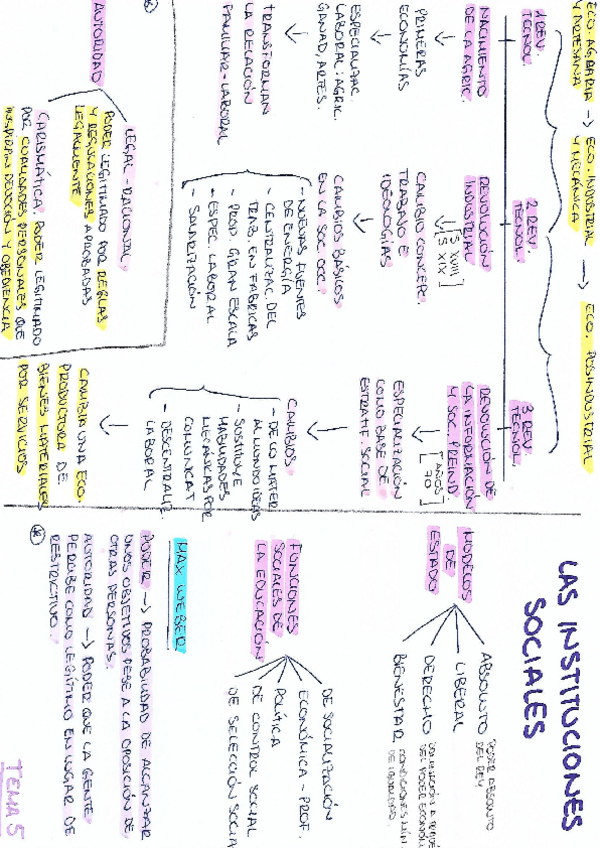 LAS INSTITUCIONES
SOCIALES
MODELOS
DE
ESTADO
ABSOLUTO PODER ABSOLUTO
DEL REY
LIBERAL
DERECHO
DEL PODER
BIENESTAR CONDICIONES MÍN.
DE IGUALDAD.
FUNCIONES
SOCIALES DE
LA EDUCACIÓN
DE SOCIALIZACIÓN
ECONÓMICA - PROF.
POLÍTICA
DE CONTROL SOCIAL
DE SELECCIÓN SOCIAL
MAX WEBER
PODER → PROBABILIDAD DE ALCANZAR
UNOS OBJETIVOS PESE A LA OPOSICIÓN DE
OTRAS PERSONAS.
AUTORIDAD → PODER QUE LA GENTE
PERCIBE COMO LEGÍTIMO EN LUGAR DE
RESTRICTIVO.
TEMA 5
ECO. AGRARIA → ECO. INDUSTRIAL → ECO. POSINDUSTRIAL
Y ARTESANA Y MECÁNICA
1 REV.
TECNOL.
2 REV.
TECNOL.
3 REV.
TECNOL.
NACIMIENTO
DE LA AGRIC.
PRIMERAS
ECONOMÍAS
ESPECIALIZAC.
LABORAL: AGRIC.
GANAD, ARTES.
TRANSFORMAN
LA RELACIÓN
FAMILIAR-LABORAL
REVOLUCIÓN
INDUSTRIAL
S XVIII
S XIX
CAMBIO CONCEPC.
TRABAJO E
IDEOLOGÍAS
CAMBIOS BÁSICOS
EN LA SOC. OCC.
- NUEVAS FUENTES
DE ENERGÍA
- CENTRALIZAC. DEL
TRAB. EN FÁBRICAS
- PROD. GRAN ESCALA
- ESPEC. LABORAL
- SALARIZACIÓN
REVOLUCIÓN DE
LA INFORMACIÓN
Y SOC.
AÑOS
70
ESPECIALIZACIÓN
COMO BASE DE
ESTRATIF. SOCIAL
CAMBIOS
- DE LO MATER
AL MUNDO IDEAS
- SUSTITUYE
HABILIDADES
MECÁNICAS POR
COMUNICAT
- DESCENTRALIZ.
LABORAL
CAMBIA UNA ECO.
PRODUCTORA DE
BIENES MATERIALES
POR SERVICIOS
AUTORIDAD
LEGAL-RACIONAL.
PODER LEGITIMADO POR REGLAS
Y REGULACIONES APROBADAS
LEGALMENTE
CARISMÁTICA. PODER LEGITIMADO
POR CUALIDADES PERSONALES QUE
INSPIRAN DEVOCIÓN Y OBEDIENCIA